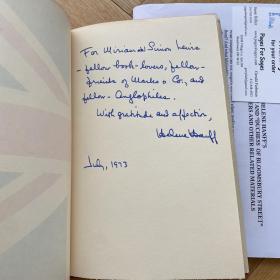 For Miriam & Simon Lewis
- fellow book-lovers, fellow-
friends of Marks & Co., and
fellow-Anglophiles.
With gratitude and affection,
Helene Hanff
July, 1973
for your order
Pages For Sages
HELENE HANFF'S
AND "DUCHESS OF BLOOMSBURY STREET"
AND OTHER RELATED MATERIALS